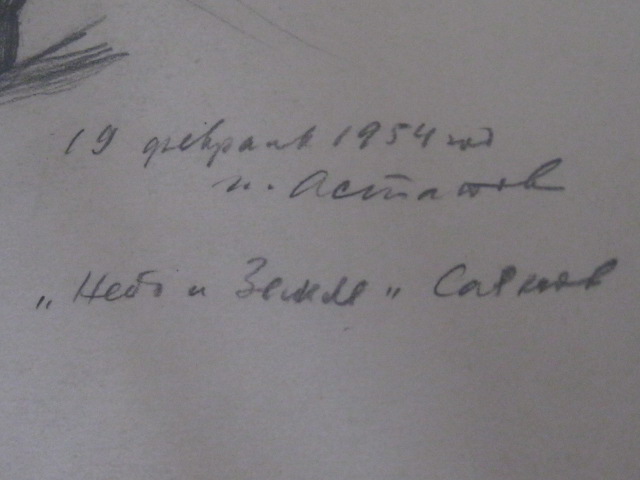 19 февраль 1954 год
и. Астапов
„Небо и Земля" Саянов